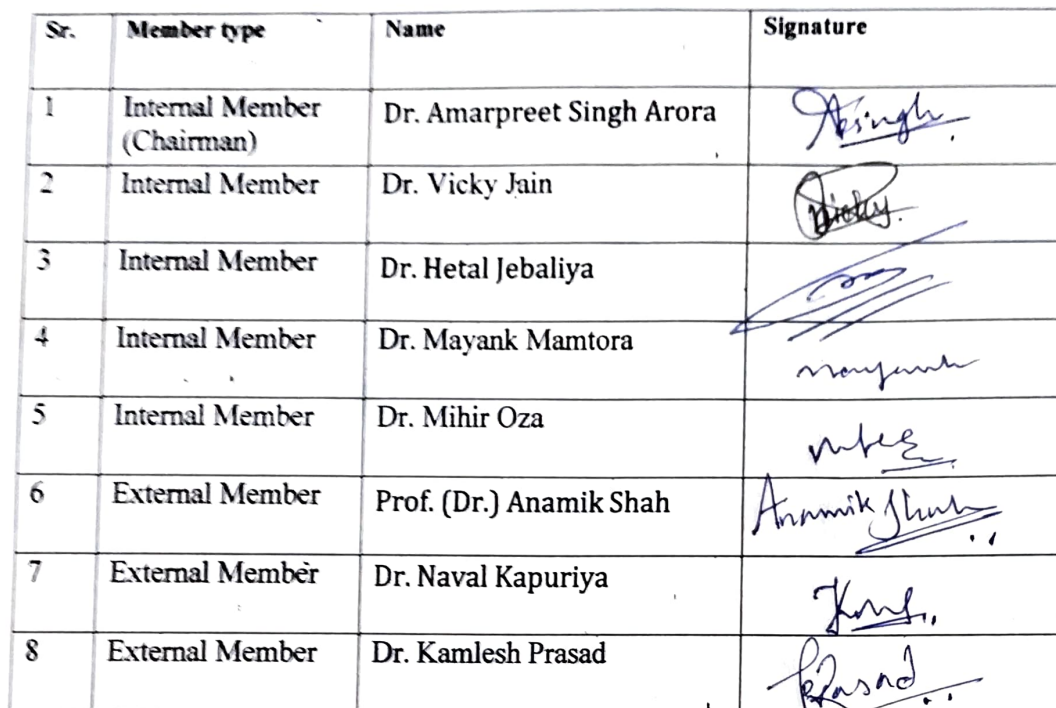 Sr. Member type Name Signature
1 Internal Member Dr. Amarpreet Singh Arora Asingh
(Chairman)
2 Internal Member Dr. Vicky Jain Vicky
3 Internal Member Dr. Hetal Jebaliya
4 Internal Member Dr. Mayank Mamtora mayank
5 Internal Member Dr. Mihir Oza
6 External Member Prof. (Dr.) Anamik Shah Anamik Shah
7 External Member Dr. Naval Kapuriya
8 External Member Dr. Kamlesh Prasad KPrasad